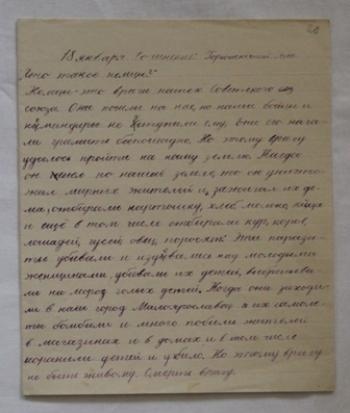 20
18 января. Сочинение.
"Что такое немцы?"
Немцы - это враги нашего Советского
союза. Они пошли на нас, но наши бойцы и
командиры не уступили ему, они его нача-
ли громить беспощадно. Но этому врагу
удалось пройти на нашу землю. Когда
он по нашей земле, то он уничто-
жал мирных жителей и, зажигал их до-
ма, отбирали картошку, хлеб молоко, яйца
и ещё в том числе отбирали кур, коров,
лошадей, гусей овец, поросят. Эти парази-
ты убивали и издевались над молодыми
женщинами, убивали их детей, выбрасыва-
ли на мороз голых детей. Когда они заходи-
ли в наш город Малоярославец и их самолё-
ты бомбили и много побили жителей
в магазинах и в домах и в том числе
поранили детей и убило. Но этому врагу
не быть живому. Смерть врагу.